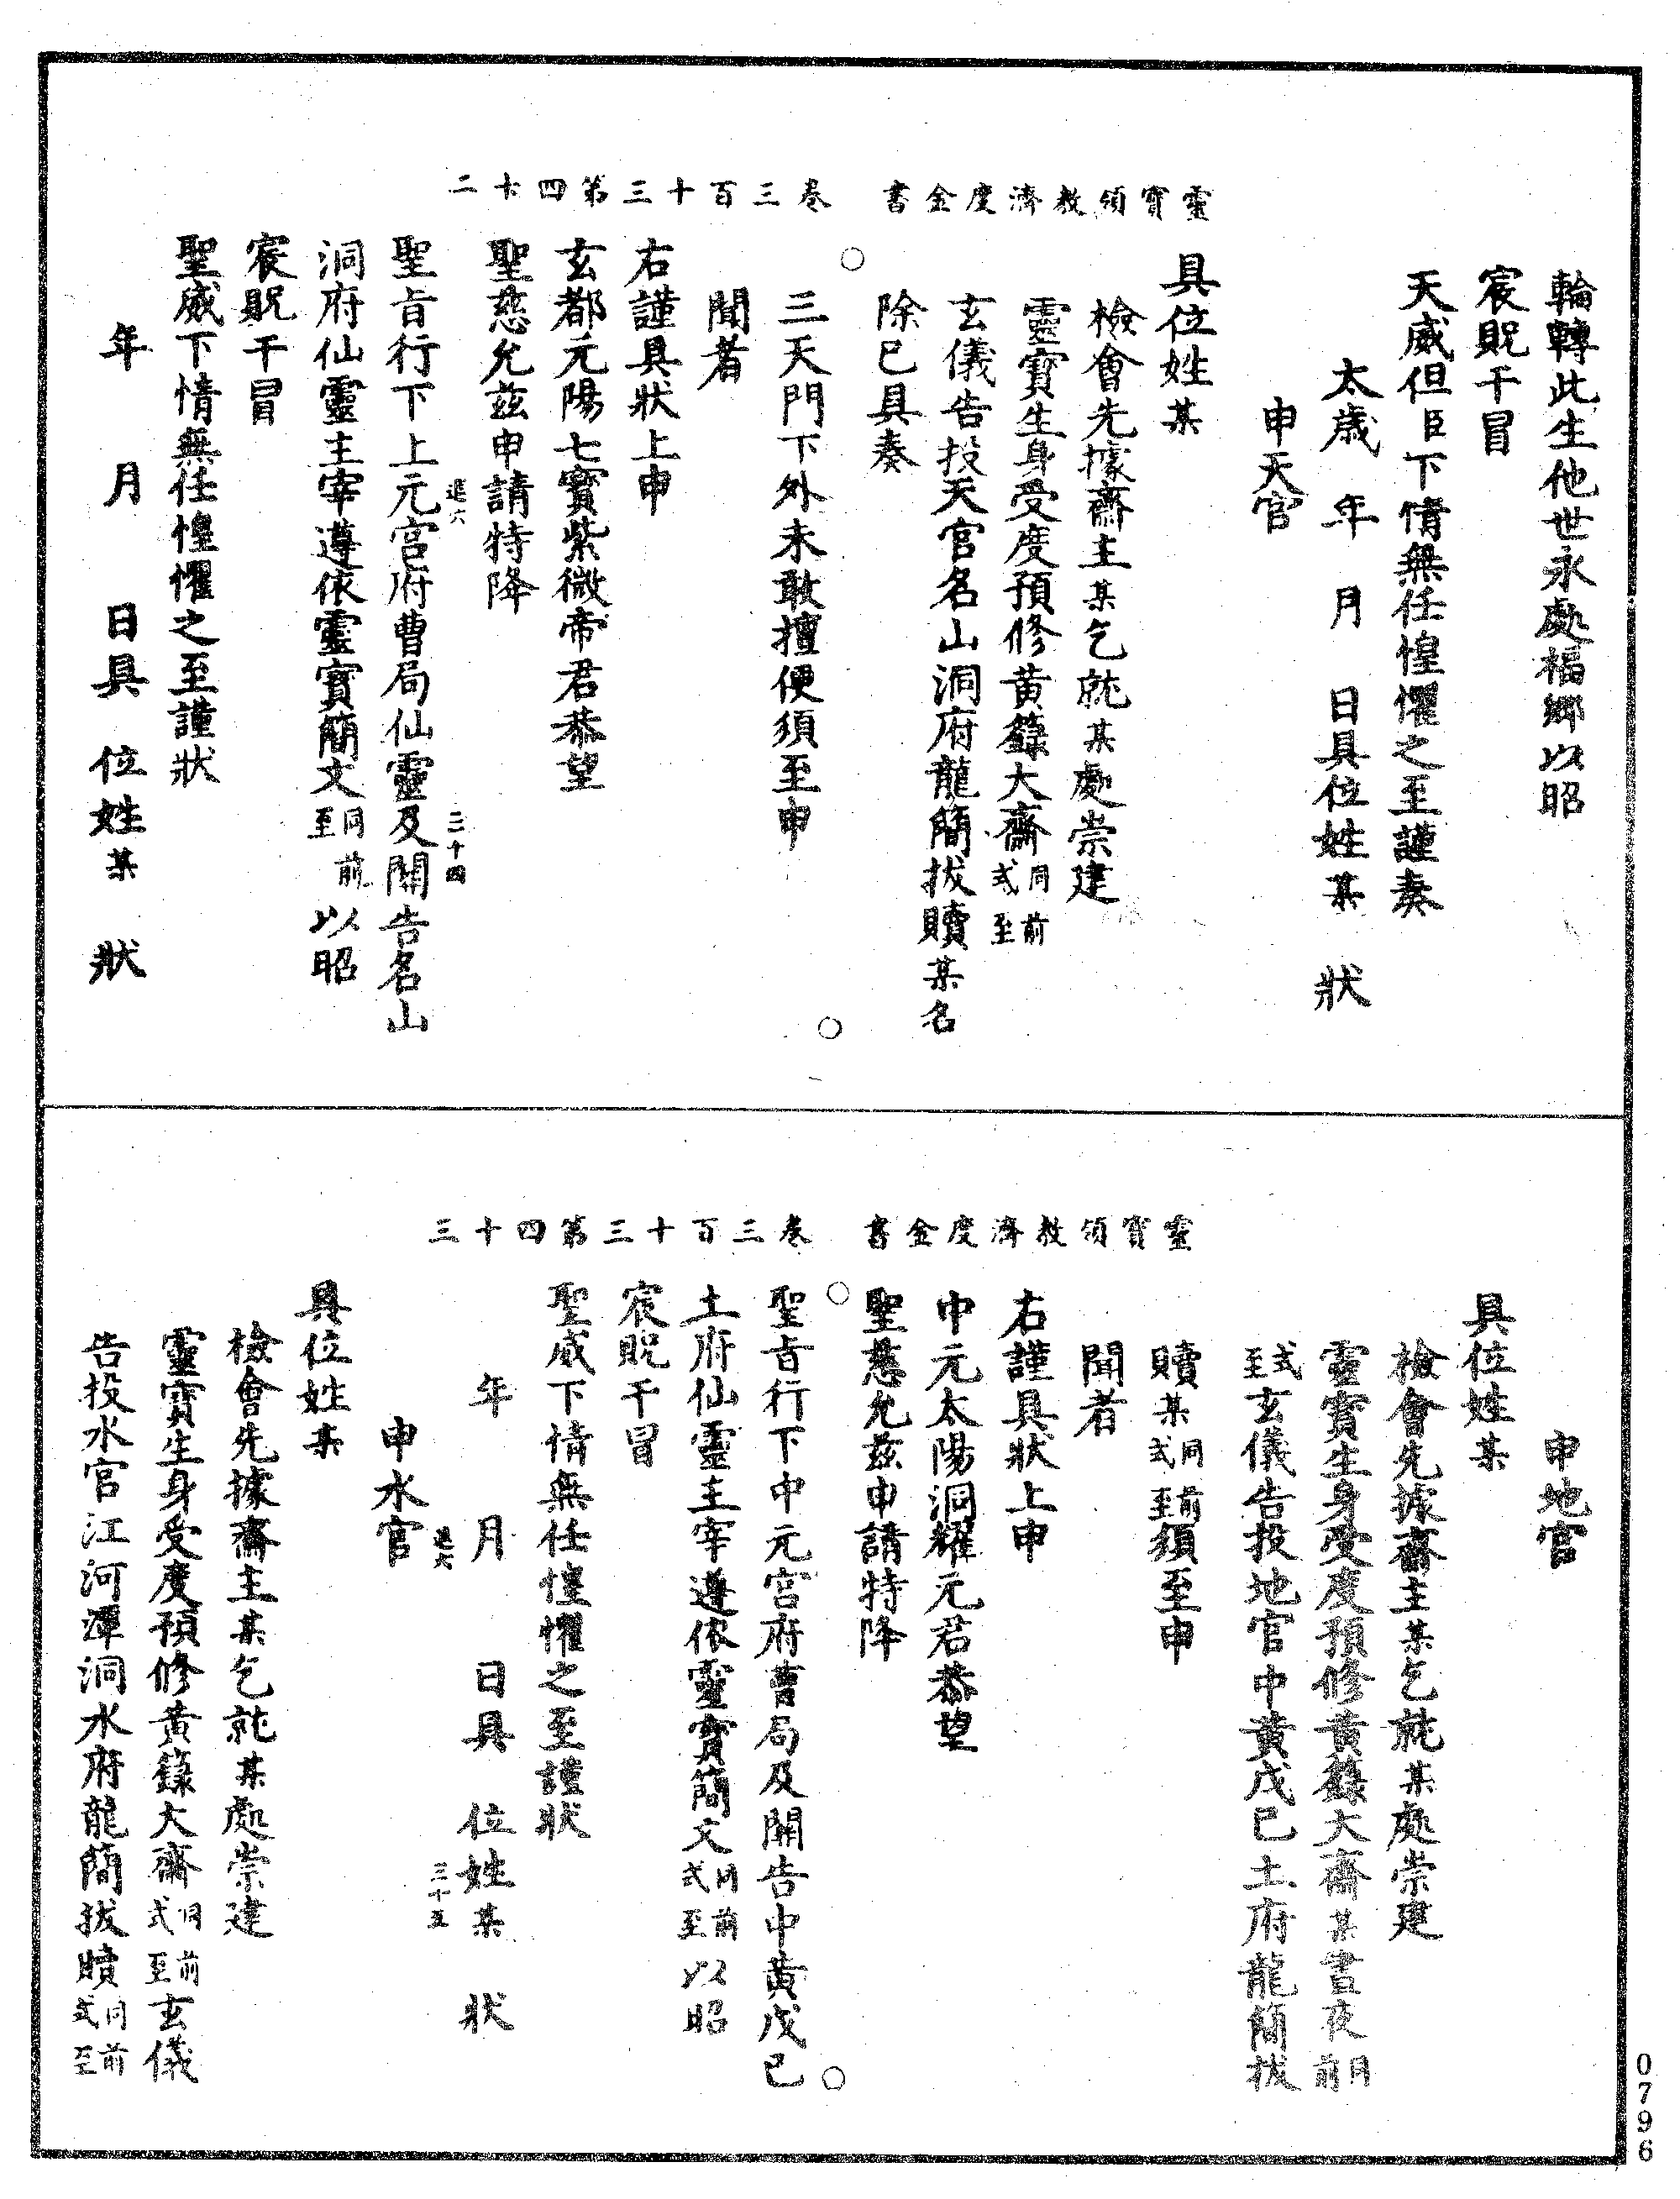 靈寶領教濟度金書　卷三百十三第四十二
輪轉此生他世永處福鄉以昭
宸貺干冒
天威但臣下情無任惶懼之至謹奏
太歲　年　月　日具位姓某　狀
申天官
具位姓某
檢會先據齋主某乞就某處崇建
靈寶生身受度預修黃籙大齋同前式至
玄儀告投天官名山洞府龍簡拔贖某名
除已具奏
三天門下外未敢擅便須至申
聞者
右謹具狀上申
玄都元陽七寶紫微帝君恭望
聖慈允茲申請特降
退六　二十四
聖旨行下上元宮府曹局仙靈及關告名山
洞府仙靈主宰遵依靈寶簡文同前至以昭
宸貺干冒
聖威下情無任惶懼之至謹狀
年　月　日具　位姓某　狀
靈寶領教濟度金書　卷三百十三第四十三
申地官
具位姓某
檢會先據齋主某乞就某處崇建
靈寶生身受度預修黃籙大齋某晝夜同前
式至玄儀告投地官中黃戊己土府龍簡拔
贖某同前式至須至申
聞者
右謹具狀上申
中元太陽洞耀元君恭望
聖慈允茲申請特降
聖旨行下中元宮府曹局及關告中黃戊己
土府仙靈主宰遵依靈寶簡文同前式至以昭
宸貺干冒
聖威下情無任惶懼之至謹狀
年　月　日具　位姓某　狀
退六　二十五
申水官
具位姓某
檢會先據齋主某乞就某處崇建
靈寶生身受度預修黃籙大齋同前式至玄儀
告投水官江河潭洞水府龍簡拔贖同前式至
0796